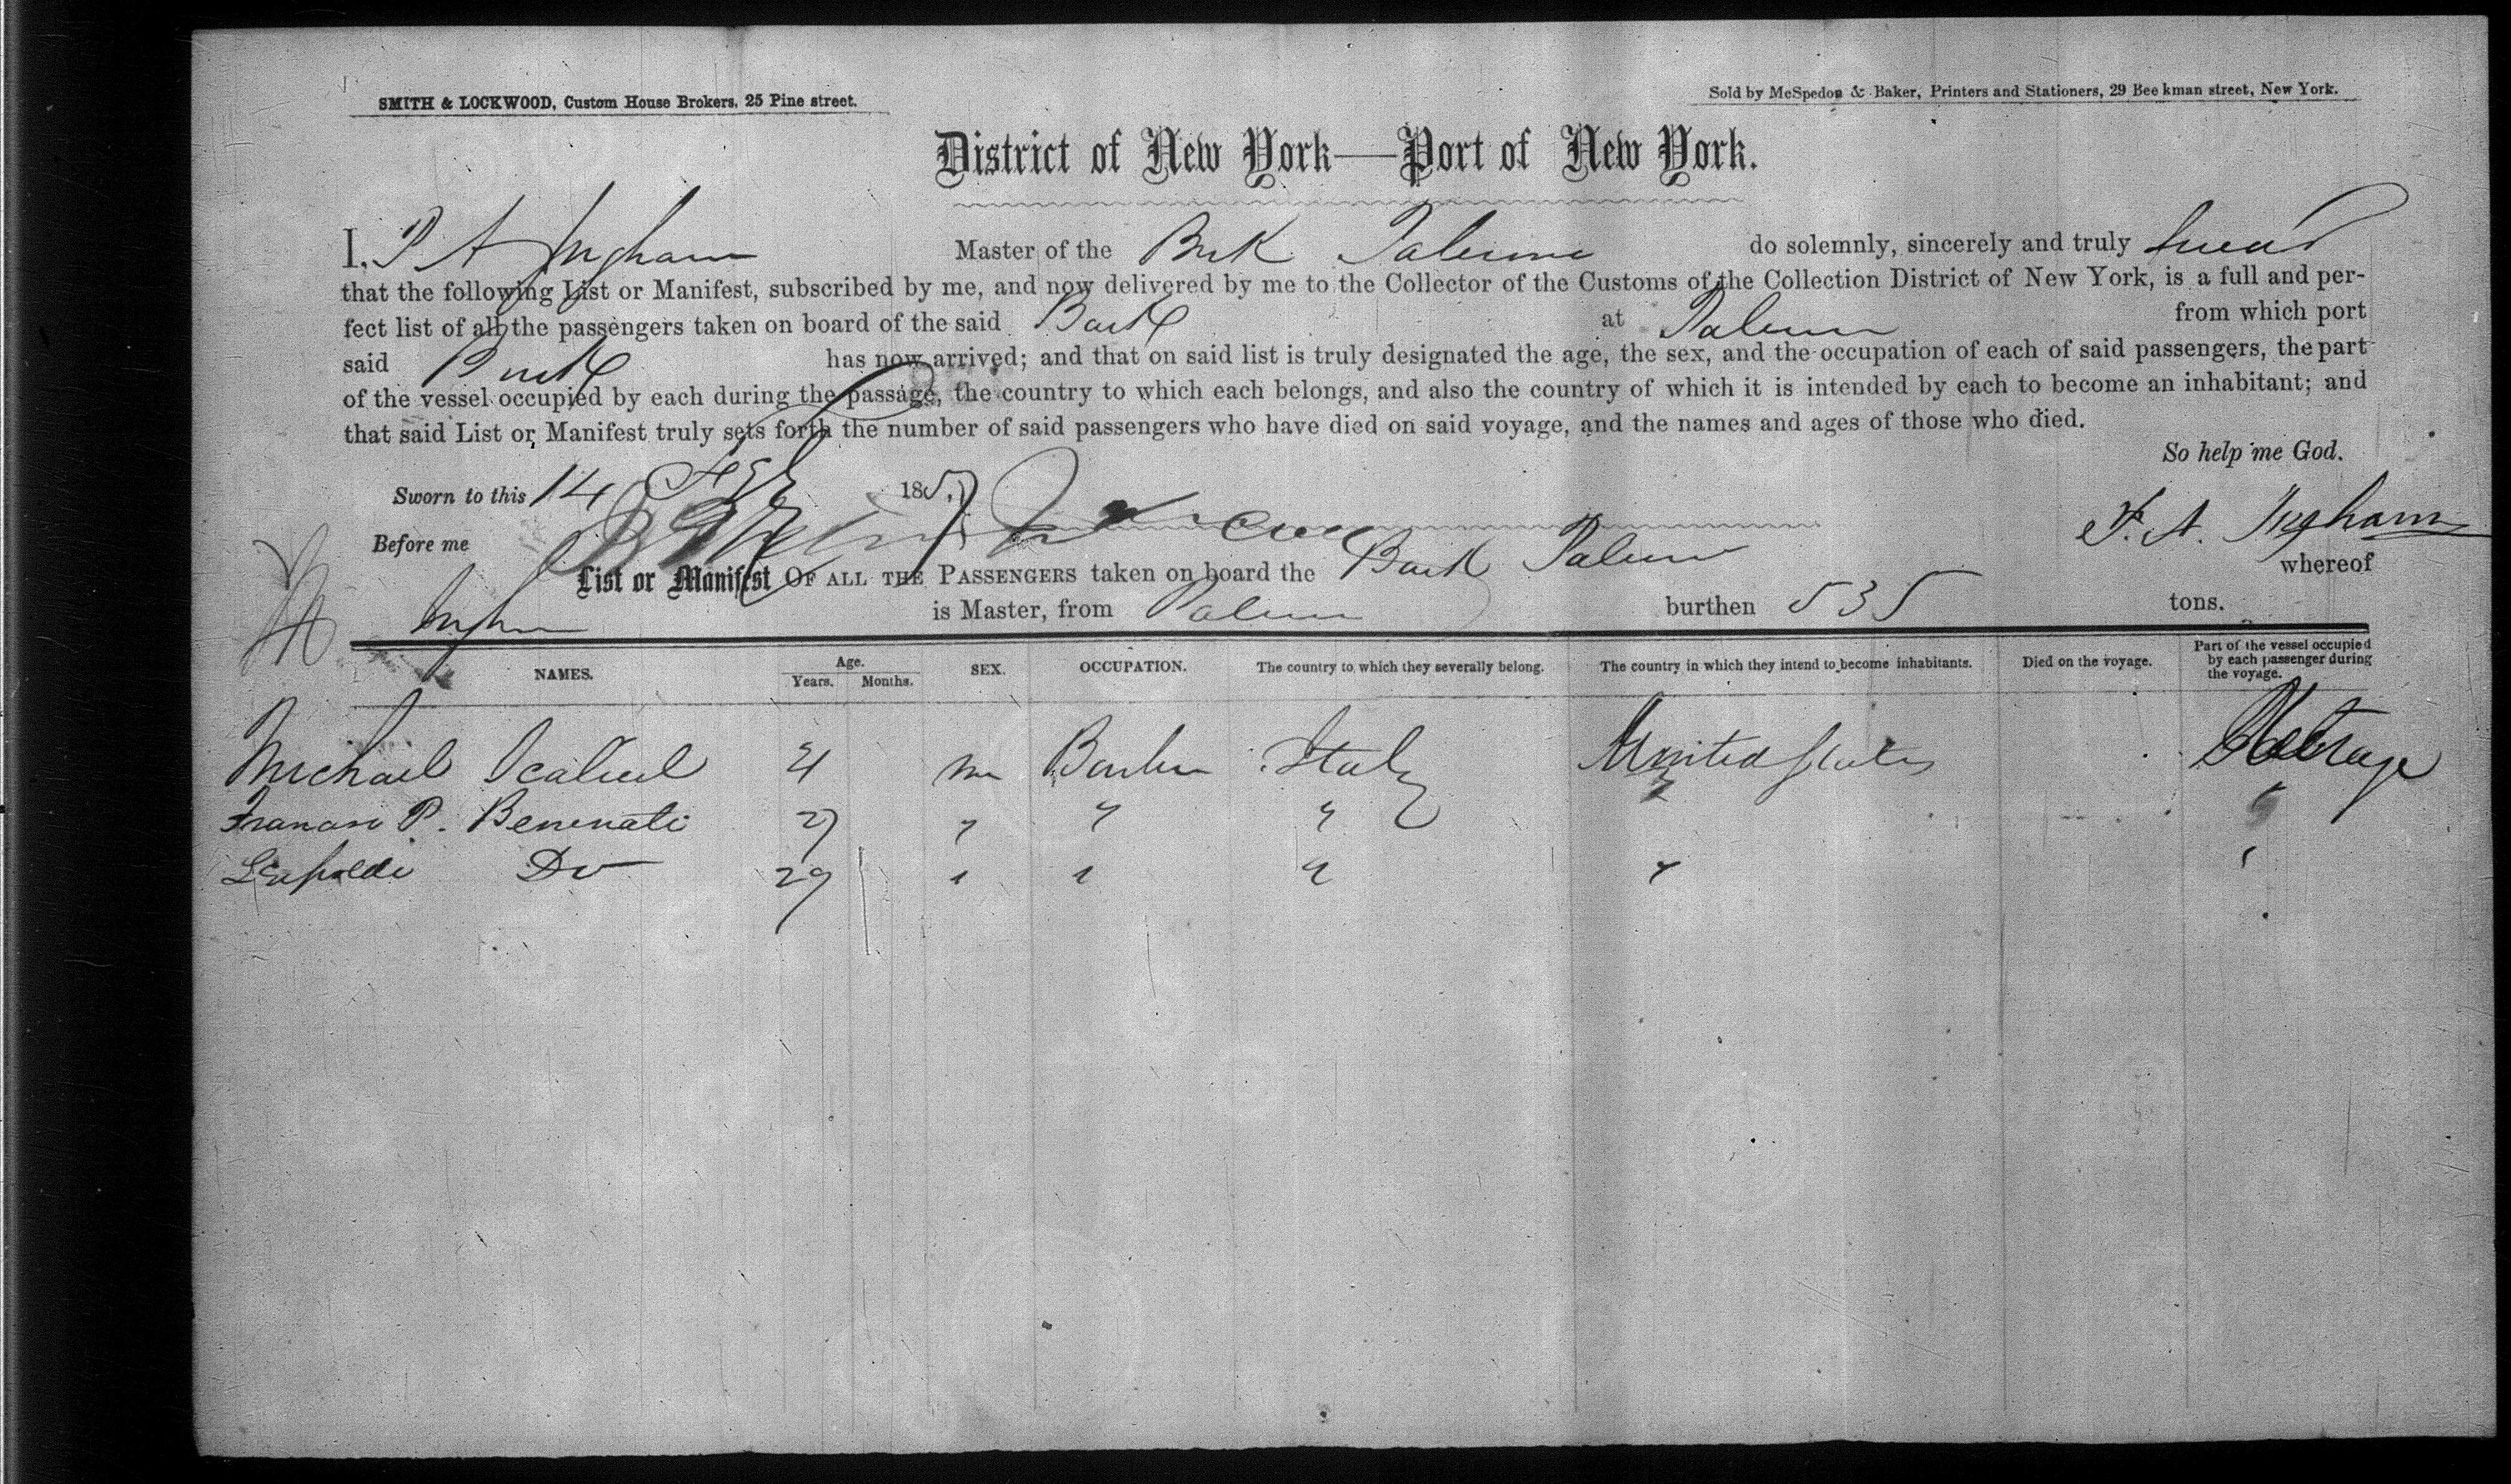 SMITH & LOCKWOOD, Custom House Brokers, 25 Pine street.
Sold by McSpedon & Baker, Printers and Stationers, 29 Beekman street, New York.
District of New York—Port of New York.
I, P A Ingham Master of the Bark Palermo do solemnly, sincerely and truly swear
that the following List or Manifest, subscribed by me, and now delivered by me to the Collector of the Customs of the Collection District of New York, is a full and per-
fect list of all the passengers taken on board of the said Bark at Palermo from which port
said Bark has now arrived; and that on said list is truly designated the age, the sex, and the occupation of each of said passengers, the part
of the vessel occupied by each during the passage, the country to which each belongs, and also the country of which it is intended by each to become an inhabitant; and
that said List or Manifest truly sets forth the number of said passengers who have died on said voyage, and the names and ages of those who died.
So help me God.
Sworn to this 14 1857
Before me
A. Ingham
List or Manifest OF ALL THE PASSENGERS taken on board the Bark Palermo whereof
Ingham is Master, from Palermo burthen 535 tons.
NAMES. Age. Years. Months. SEX. OCCUPATION. The country to which they severally belong. The country in which they intend to become inhabitants. Died on the voyage. Part of the vessel occupied by each passenger during the voyage.
Michael m Italy United States Steerage
P. Benenati 27 " " " " "
Do 29 " " " " "